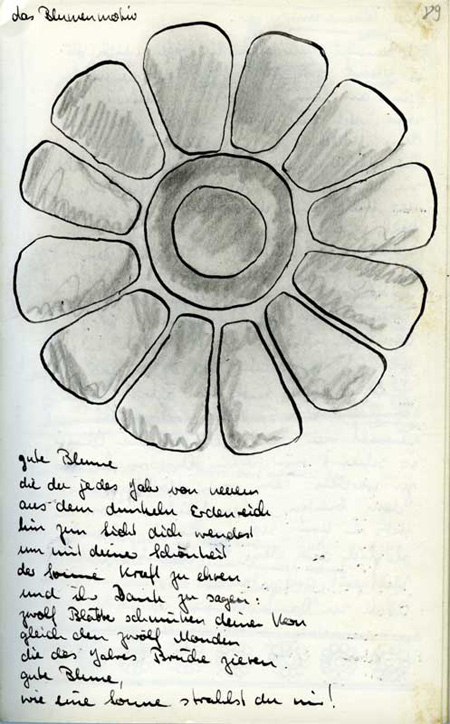 das Blumenmotiv
89
gute Blume
die du jedes Jahr von neuem
aus dem dunkeln Erdenreich
hin zum Licht dich wendest
um mit deine Schönheit
der Sonne Kraft zu ehren
und ihr Dank zu sagen:
zwölf Blätter schmücken deinen Kern
gleich den zwölf Monden
die des Jahres Brüche zieren.
gute Blume,
wie eine Sonne strahlst du mir!